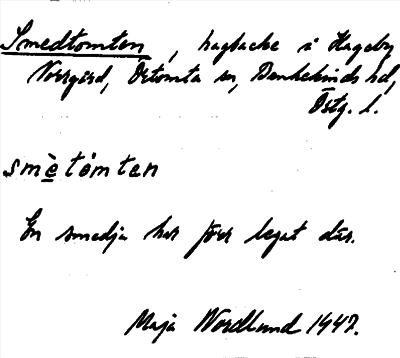 Smedtomten, hagbacke i Hageby
Norrgård, Örtomta sn, Bankekinds hd,
Östg. l.
smèt  ́omtan
En smedja har förr legat där.
Maja Nordlund 1947.